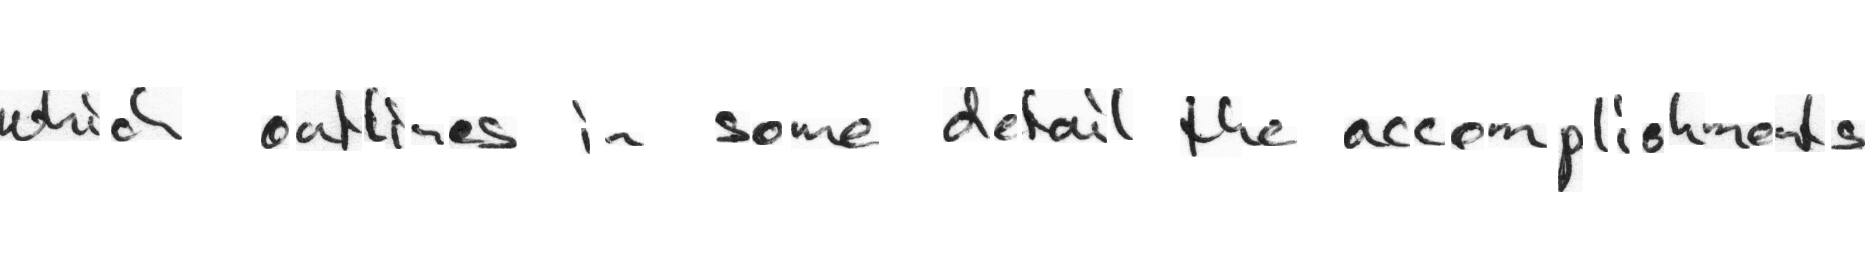 which outlines in some detail the accomplishments